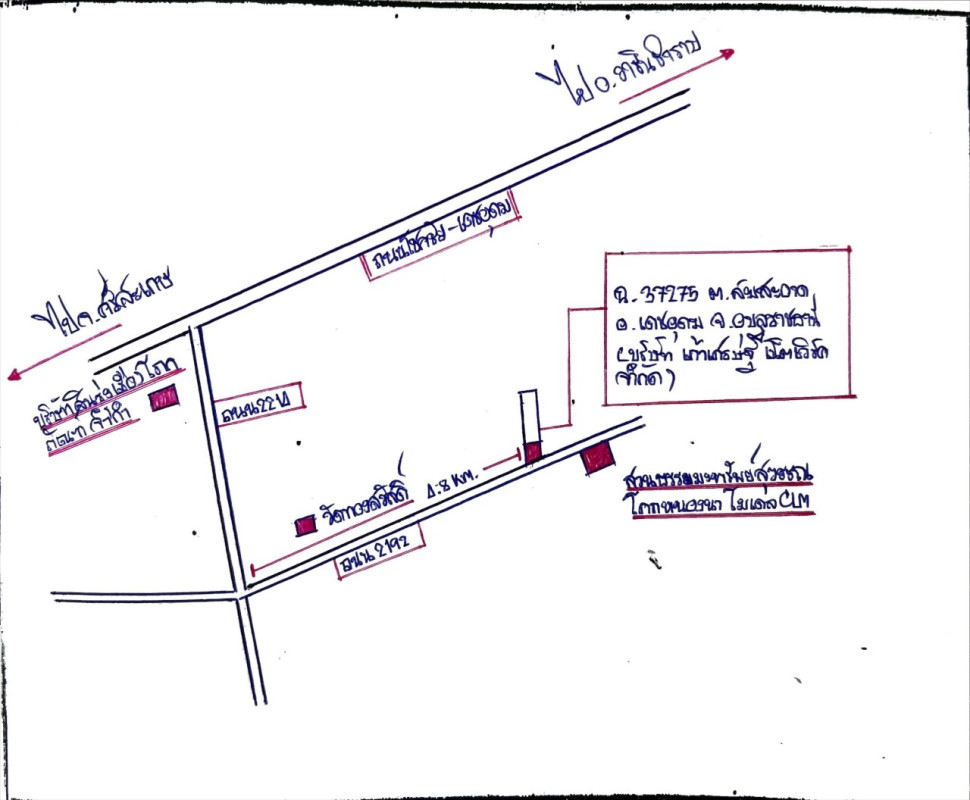 ไป อ.วารินชำราบ
ถนนโชคชัย-เดชอุดม
ไป จ.ศรีสะเกษ
ฉ. 37275 ต.สมสะอาด
อ.เดชอุดม จ.อุบลราชธานี
(บริษัท เก้าเศรษฐี
จำกัด)
บริษัท
จำกัด
ถนน 2214
วัดทองสวัสดิ์ 4.8 KM.
สวนธรรมมะทรัพย์สุวรรณ
โคกหนองนา โมเดล CLM
ถนน 2192